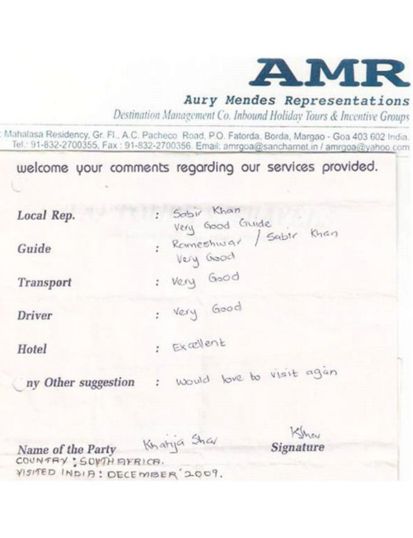 AMR
Aury Mendes Representations
Destination Management Co. Inbound Holiday Tours & Incentive Groups
: Mahalasa Residency, Gr. Fl., A.C. Pacheco Road, P.O. Fatorda, Borda, Margao - Goa 403 602 India.
Tel.: 91-832-2700355, Fax : 91-832-2700356 Email: amrgoa@sancharnet.in / amrgoa@yahoo.com
welcome your comments regarding our services provided.
Local Rep. : Sabir Khan
Very Good Guide
Guide : Rameshwar / Sabir Khan
Very Good
Transport : Very Good
Driver : Very Good
Hotel : Excellent
ny Other suggestion : Would love to visit again
Name of the Party Khatija Shar
Signature
COUNTRY : SOUTH AFRICA.
VISITED INDIA : DECEMBER '2009.